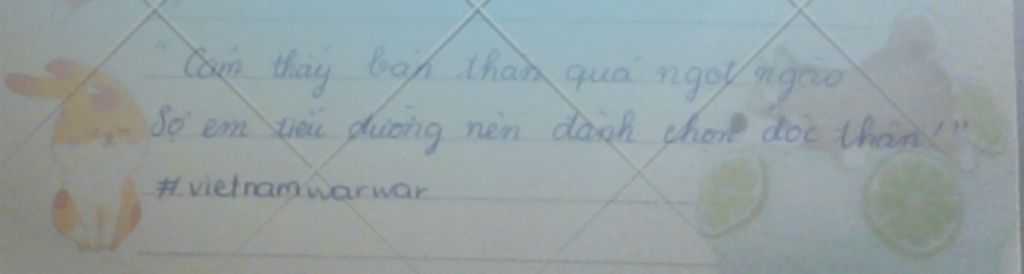 "Cảm thấy bản thân quá ngọt ngào
Sợ em tiểu đường nên đành chọn độc thân!"
#vietnamwarwar